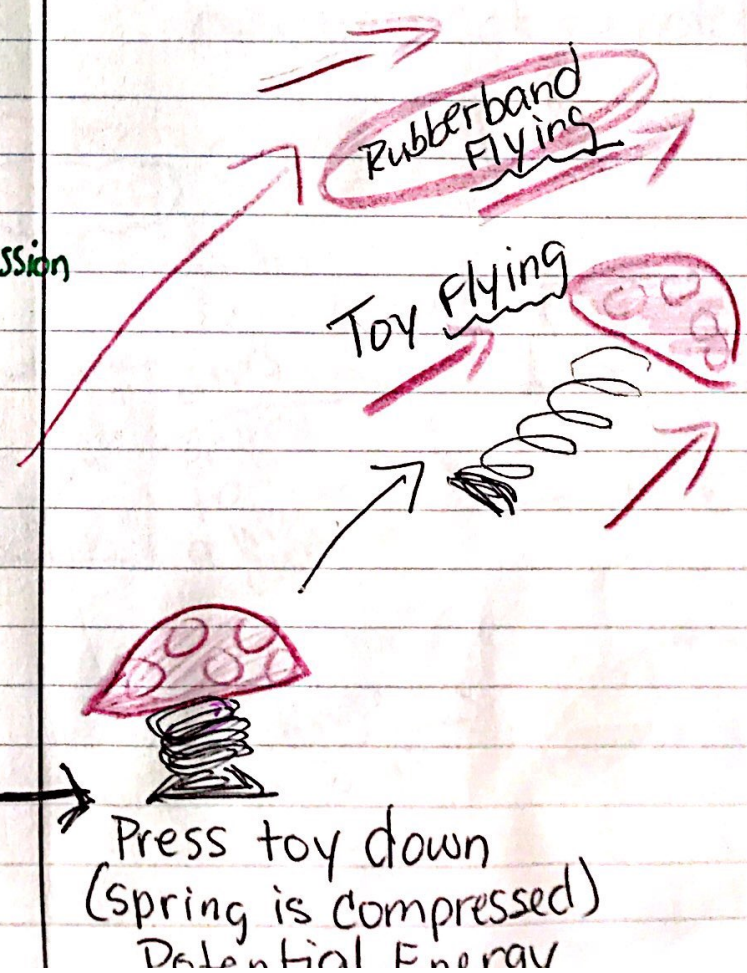 Rubberband
Flying
ssion
Toy Flying
Press toy down
(spring is compressed)
Potential Energy